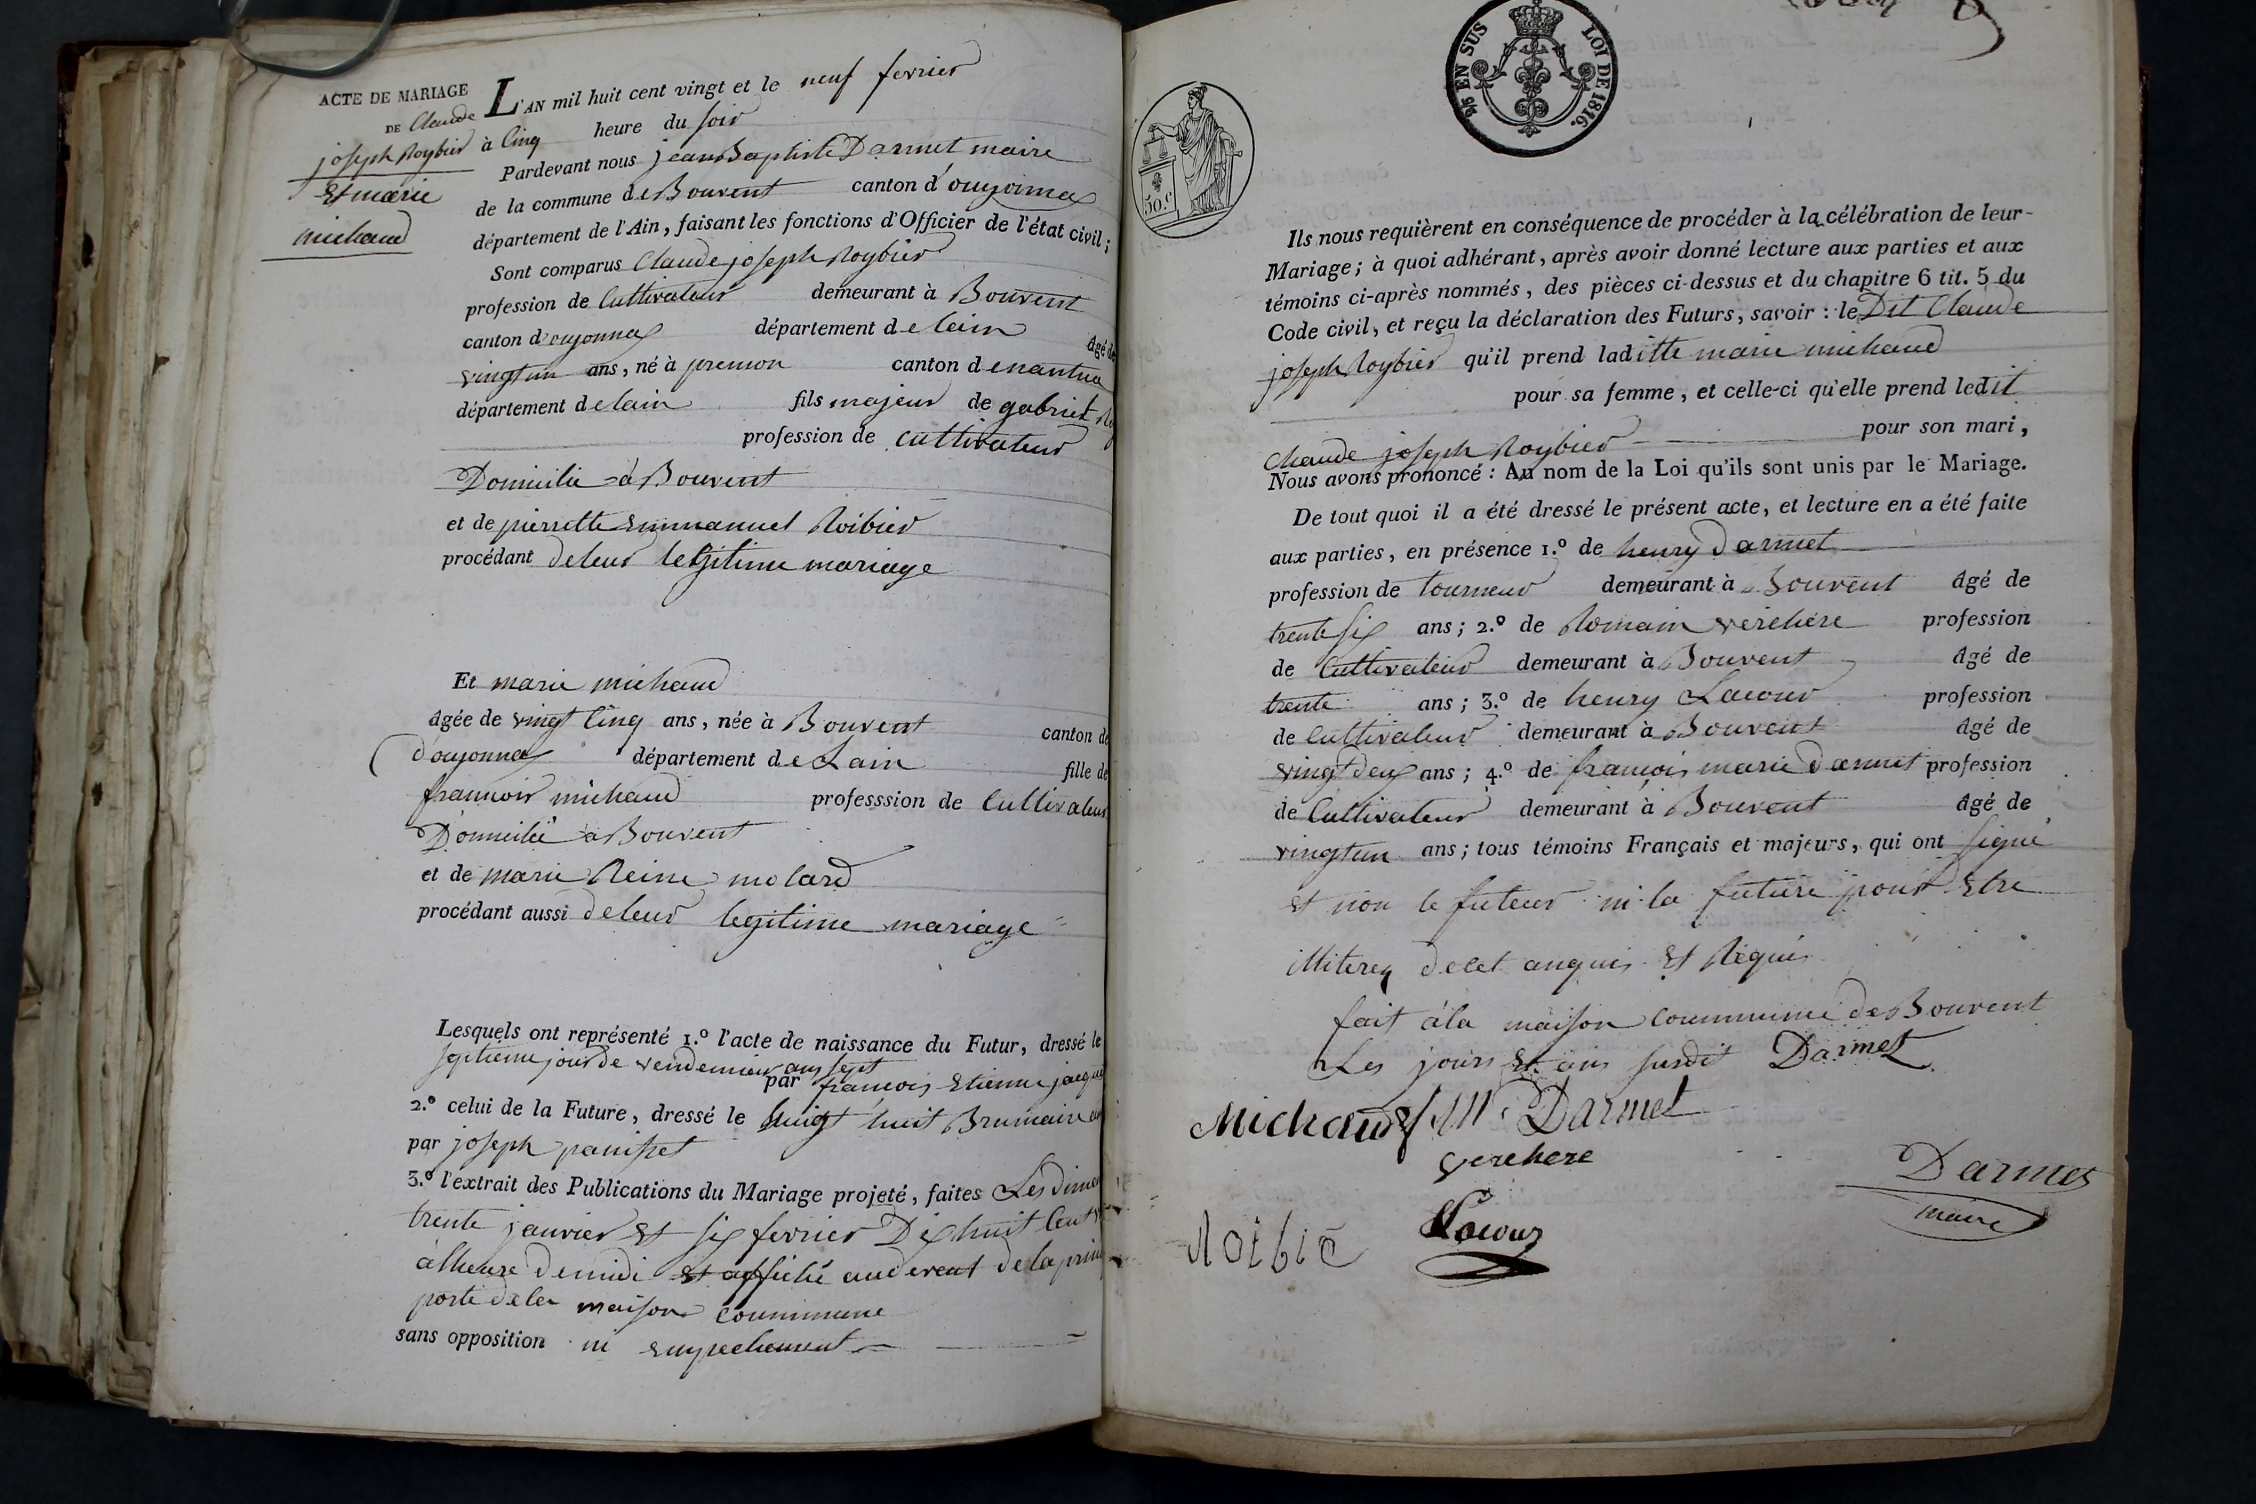 ACTE DE MARIAGE
DE Claude
joseph Roybier
Et marie
michaud
L'AN mil huit cent vingt et le neuf fevrier
à Cinq heure du soir
Pardevant nous jean Baptiste Darmet maire
de la commune de Bouvent canton d'ouyonnax
département de l'Ain, faisant les fonctions d'Officier de l'état civil;
Sont comparus Claude joseph Roybier
profession de Cultivateur demeurant à Bouvent
canton d'ouyonnax département de lain âgé de
vingtun ans, né à canton de nantua
département de lain fils majeur de gabriel
profession de cultivateur
Domicilie à Bouvent
et de pierrette Emmanuel Roibier
procédant de leur legitime mariage
Et marie michaud
âgée de vingt Cinq ans, née à Bouvent canton de
d'ouyonnax département de Lain fille de
francois michaud professsion de Cultivateur
Domicilié à Bouvent
et de marie Reine molard
procédant aussi de leur legitime mariage
Lesquels ont représenté 1.º l'acte de naissance du Futur, dressé le
septieme jour de vendemier an sept
par francois Etienne
2.º celui de la Future, dressé le vingt huit Brumaire
par joseph panisset
3.º l'extrait des Publications du Mariage projeté, faites Les
trente janvier et six fevrier Dix huit Cent
à lheure de midi et affiché au devent de la
porte de la maison commune
sans opposition ni empechement
DE EN SUS LOI DE 1816.
50.c
Ils nous requièrent en conséquence de procéder à la célébration de leur
Mariage; à quoi adhérant, après avoir donné lecture aux parties et aux
témoins ci-après nommés, des pièces ci-dessus et du chapitre 6 tit. 5 du
Code civil, et reçu la déclaration des Futurs, savoir : le Dit Claude
joseph Roybier qu'il prend laditte marie michaud
pour sa femme, et celle-ci qu'elle prend ledit
Claude joseph Roybier pour son mari,
Nous avons prononcé : Au nom de la Loi qu'ils sont unis par le Mariage.
De tout quoi il a été dressé le présent acte, et lecture en a été faite
aux parties, en présence 1.º de henry Darmet
profession de tourneur demeurant à Bouvent âgé de
trente six ans; 2.º de Romain verchere profession
de Cultivateur demeurant à Bouvent âgé de
trente ans; 3.º de henry Lacour profession
de Cultivateur demeurant à Bouvent âgé de
vingt deux ans; 4.º de françois marie Darmet profession
de Cultivateur demeurant à Bouvent âgé de
vingtun ans; tous témoins Français et majeurs, qui ont signé
et non le futeur ni la future pour Etre
illiterez de cet enquis Et Réquis
fait à la maison commune de Bouvent
Les jours et ans susdit Darmet
Michaud f M Darmet
verchere
Darmet
maire
Roibie
Lacour